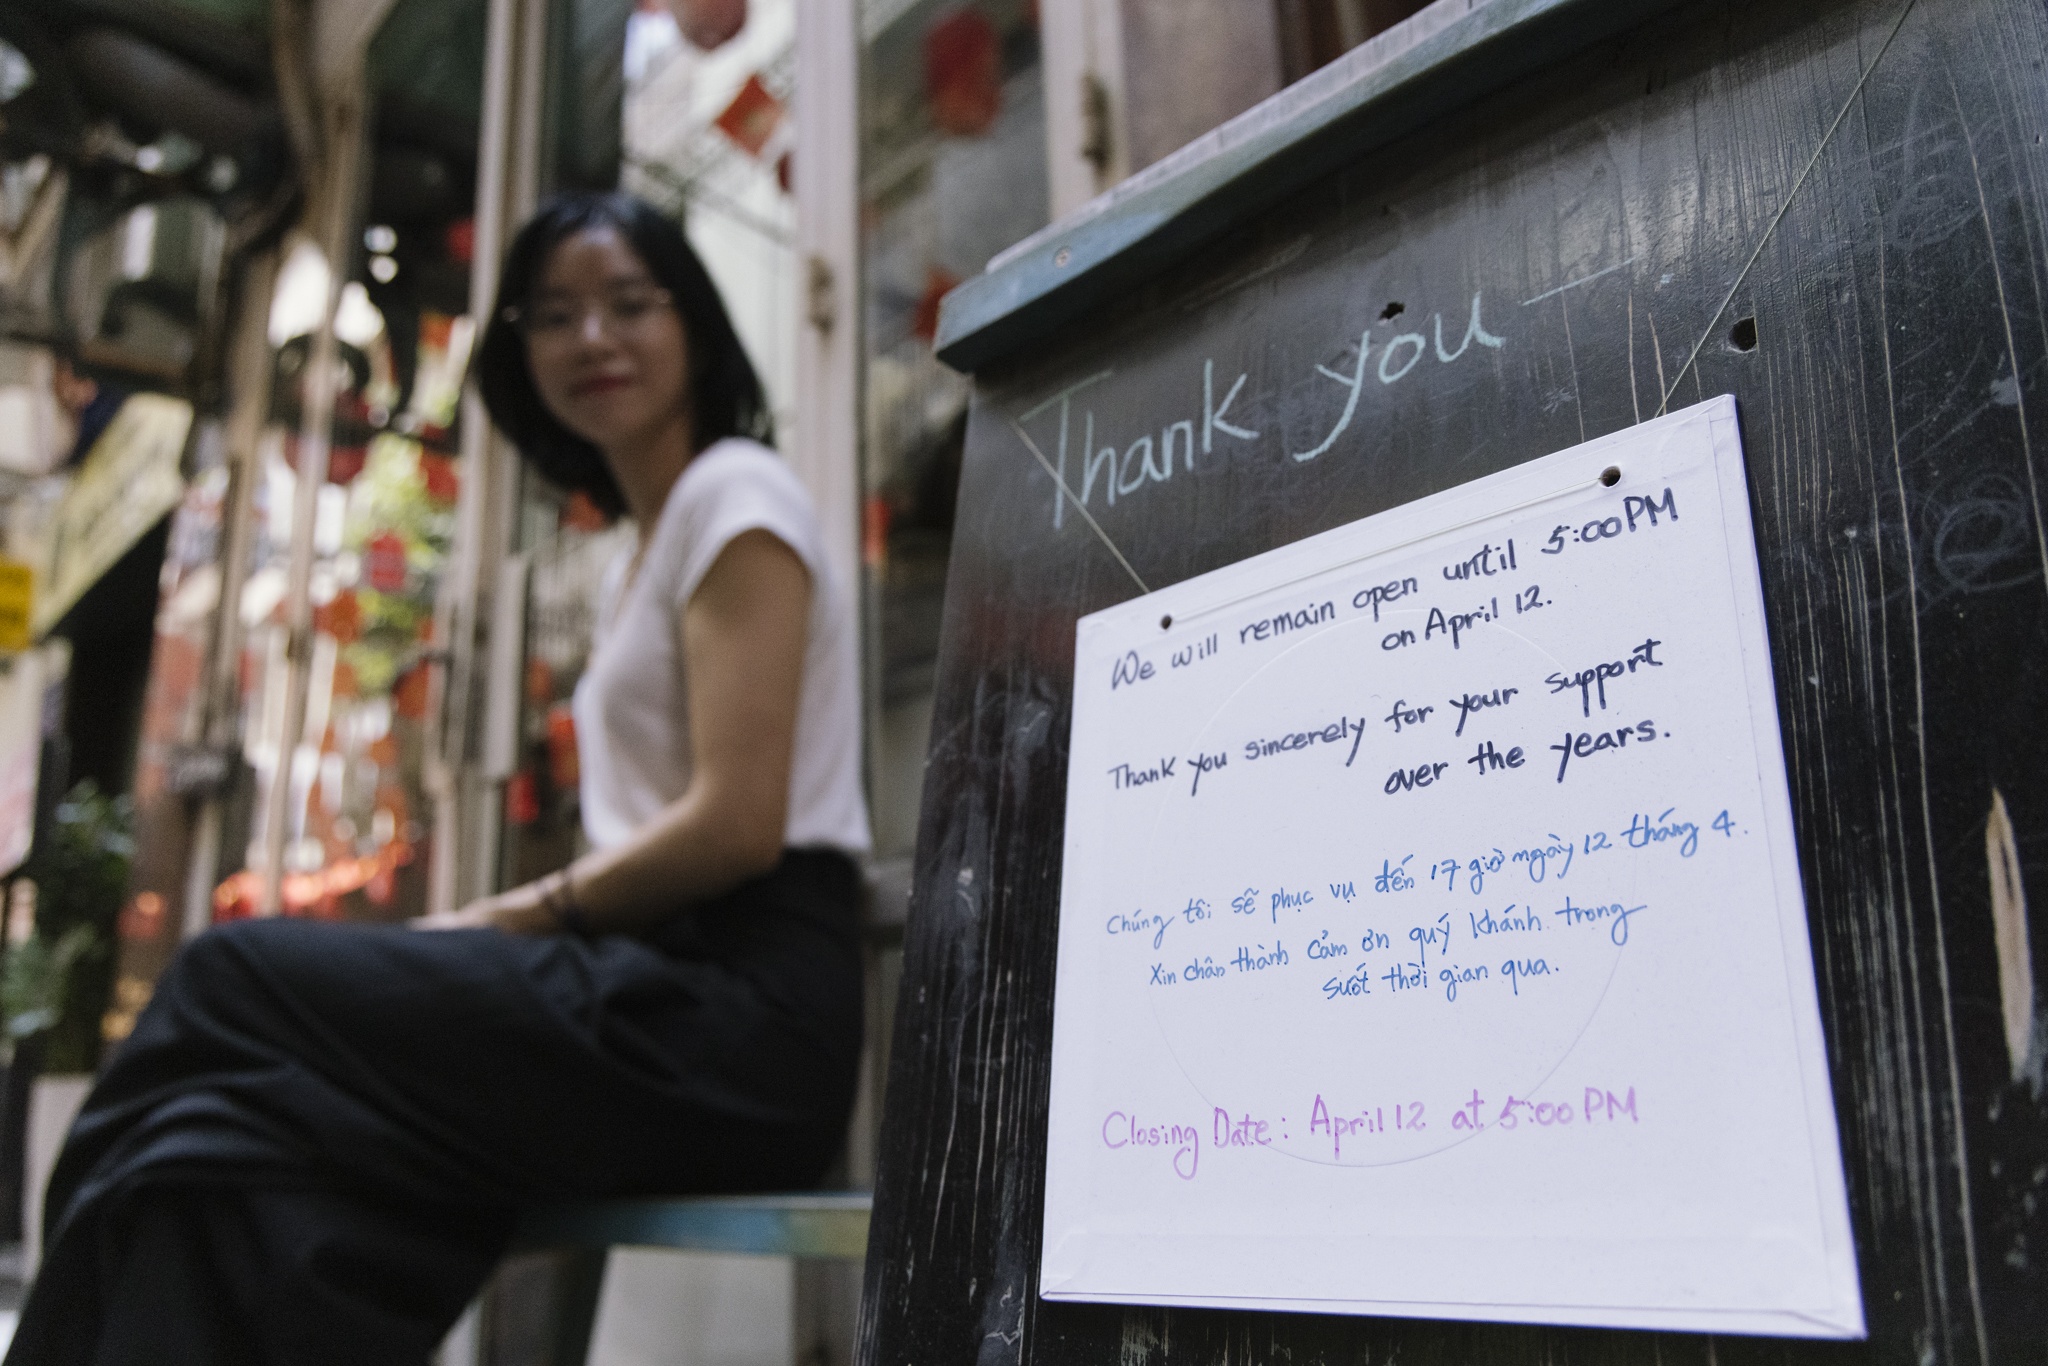 Thank you
We will remain open until 5:00 PM
on April 12.
Thank you sincerely for your support
over the years.
Chúng tôi sẽ phục vụ đến 17 giờ ngày 12 tháng 4.
Xin chân thành cảm ơn quý khánh trong
suốt thời gian qua.
Closing Date: April 12 at 5:00 PM